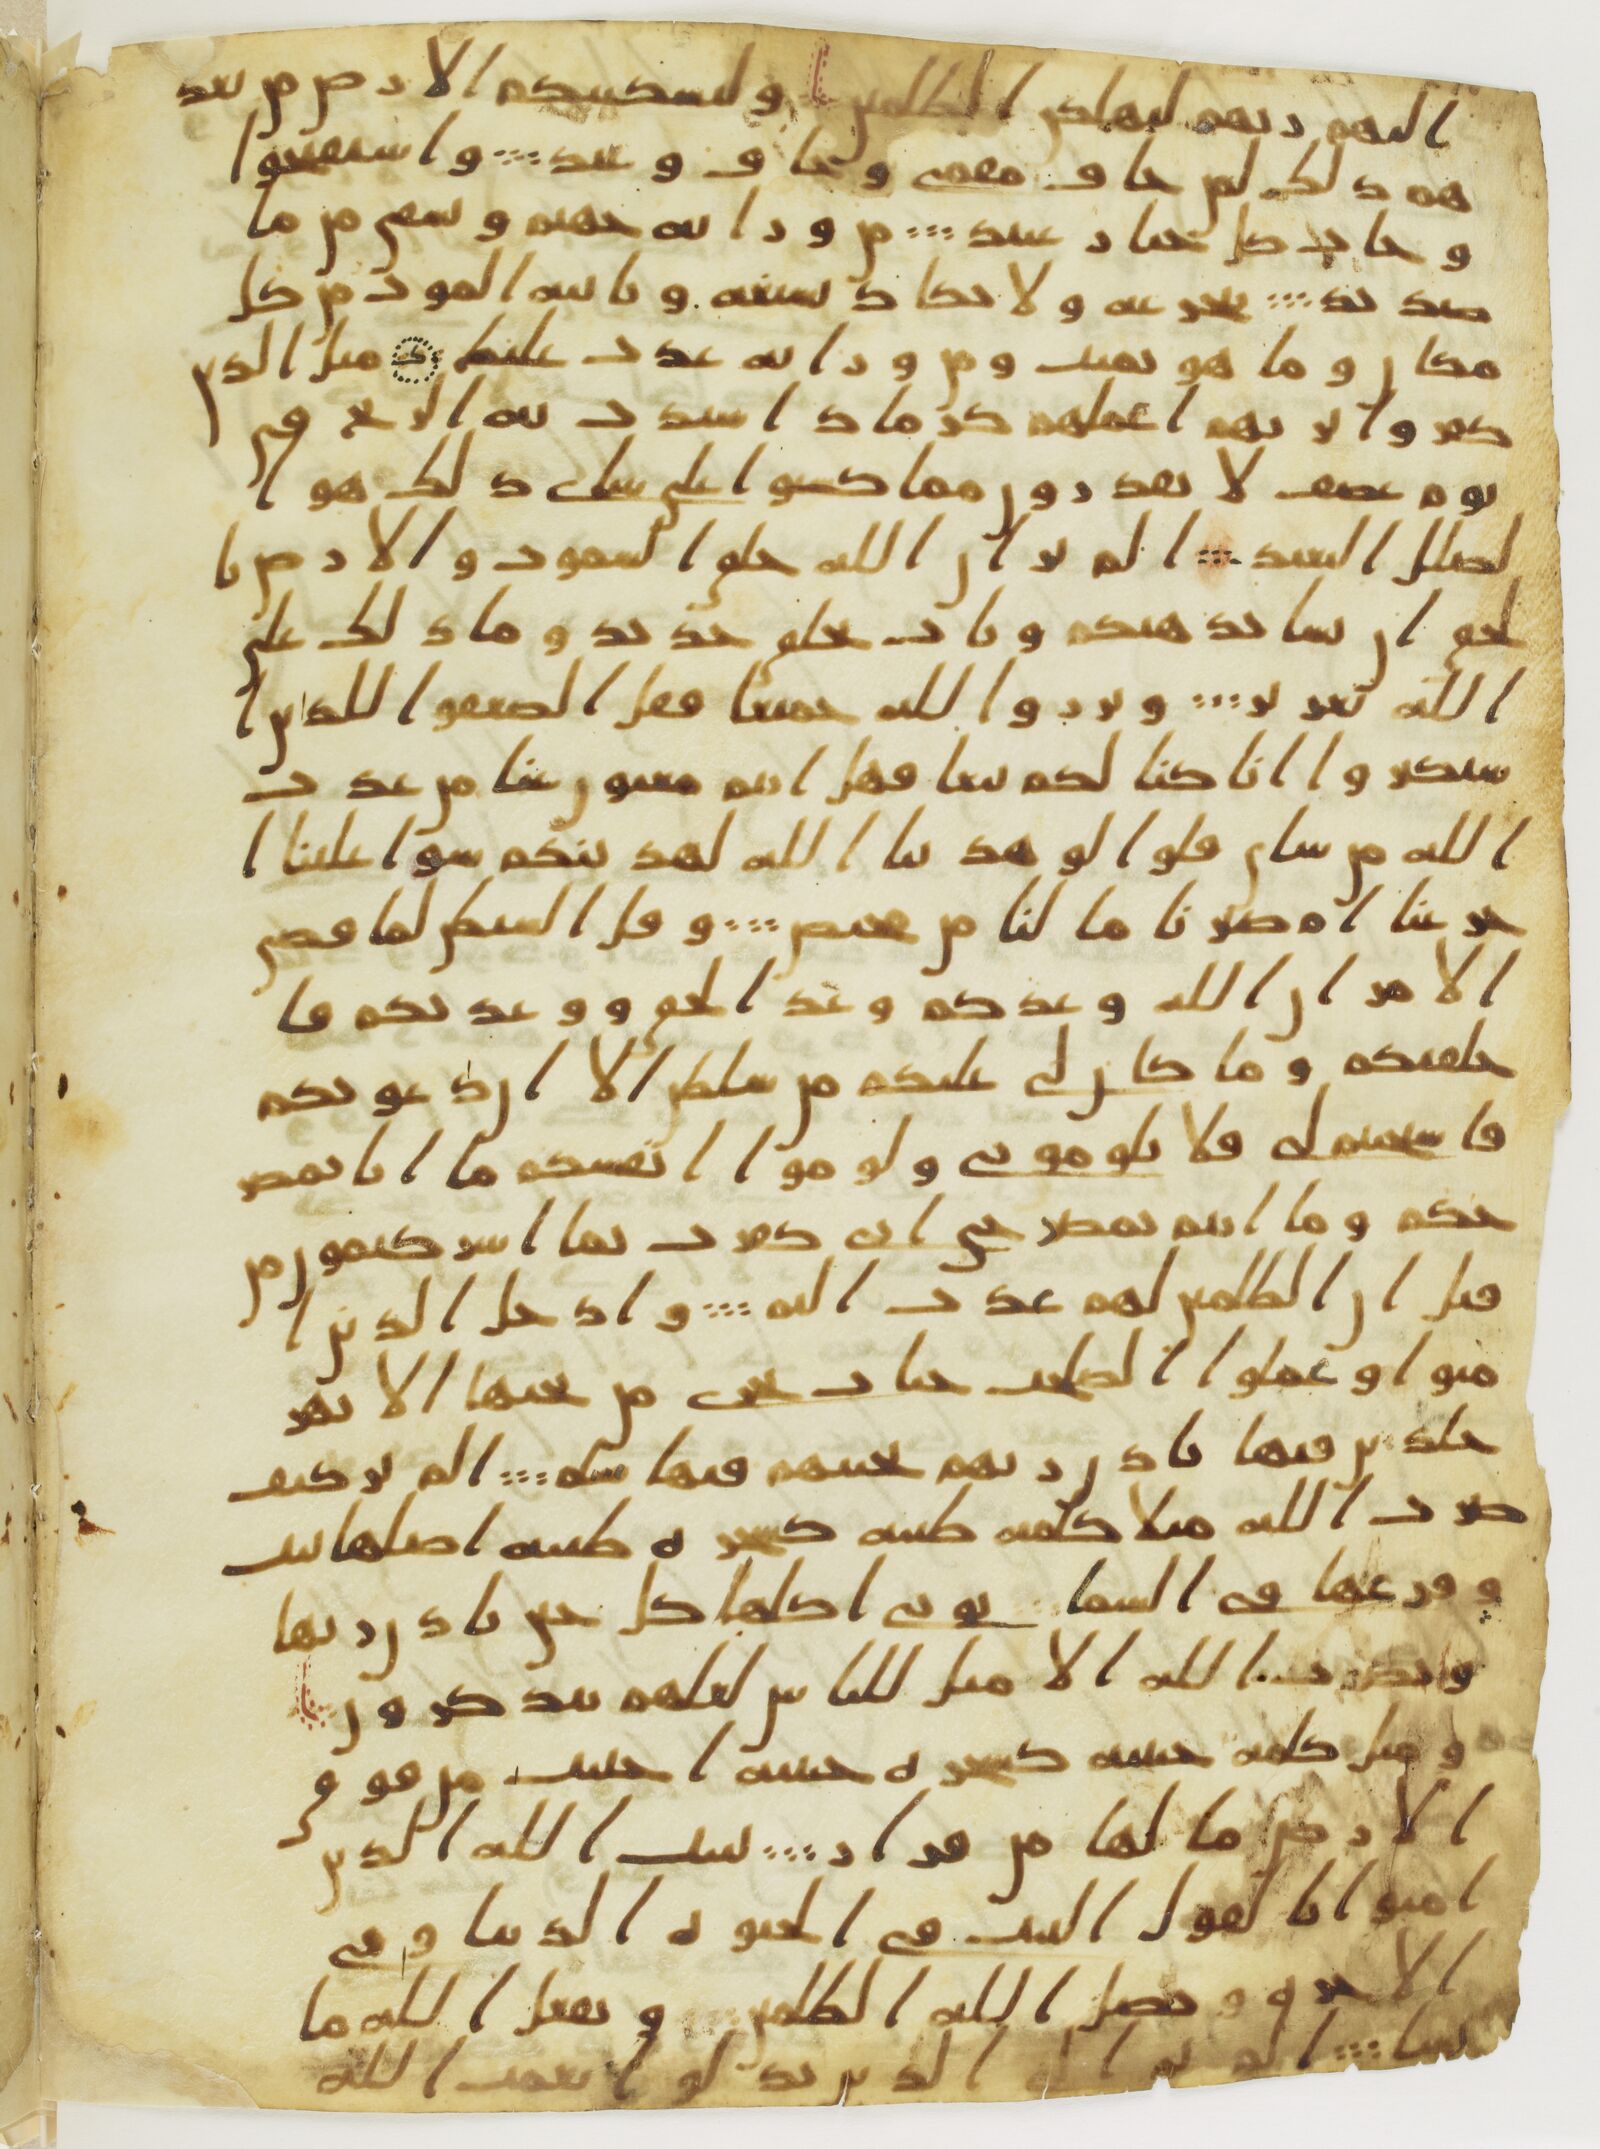 اليهم ربهم لنهلكن الظلمين ولنسكننكم الارض من بعد
هم ذلك لمن خاف مقمى وخاف وعيد واستفتحوا
وخاب كل جبار عنيد من ورائه جهنم ويسقى من ما
صديد يتجرعه ولا يكاد يسيغه وياتيه الموت من كل
مكان وما هو بميت ومن ورائه عذب غليظ مثل الذين
كفروا بربهم اعملهم كرماد اشتدت به الريح في
يوم عصف لا يقدرون مما كسبوا على شاى ذلك هو ا
لضلل البعيد الم تر ان الله خلق السموت والارض با
لحق ان يشا يذهبكم ويات بخلق جديد وما ذلك على
الله بعزيز وبرزوا لله جميعا فقل الضعفوا للذين ا
ستكبروا انا كنا لكم تبعا فهل انتم مغنون عنا من عذب
الله من شاى قلوا لو هدينا الله لهدينكم سوا علينا ا
جزعنا ام صبرنا ما لنا من محيص وقل الشيطن لما قضى
الامر ان الله وعدكم وعد الحق ووعدتكم فا
خلفتكم وما كان لى عليكم من سلطن الا ان دعوتكم
فاستجبتم لى فلا تلومونى ولوموا انفسكم ما انا بمصر
خكم وما انتم بمصرخى انى كفرت بما اشركتمون من
قبل ان الظلمين لهم عذب اليم وادخل الذين ا
منوا وعملوا الصلحت جنات تجرى من تحتها الانهر
خلدين فيها باذن ربهم تحيتهم فيها سلم الم تر كيف
ضرب الله مثلا كلمة طيبة كشجرة طيبة اصلها ثبت
وفرعها فى السما توتى اكلها كل حين باذن ربها
ويضرب الله الامثل للناس لعلهم يتذكرون
ومثل كلمة خبيثة كشجرة خبيثة اجتثت من فوق
الارض ما لها من قرار يثبت الله الذين
امنوا بالقول الثبت فى الحيوة الدنيا وفى
الاخرة ويضل الله الظلمين ويفعل الله ما
يشا الم تر الى الذين بدلوا نعمت الله